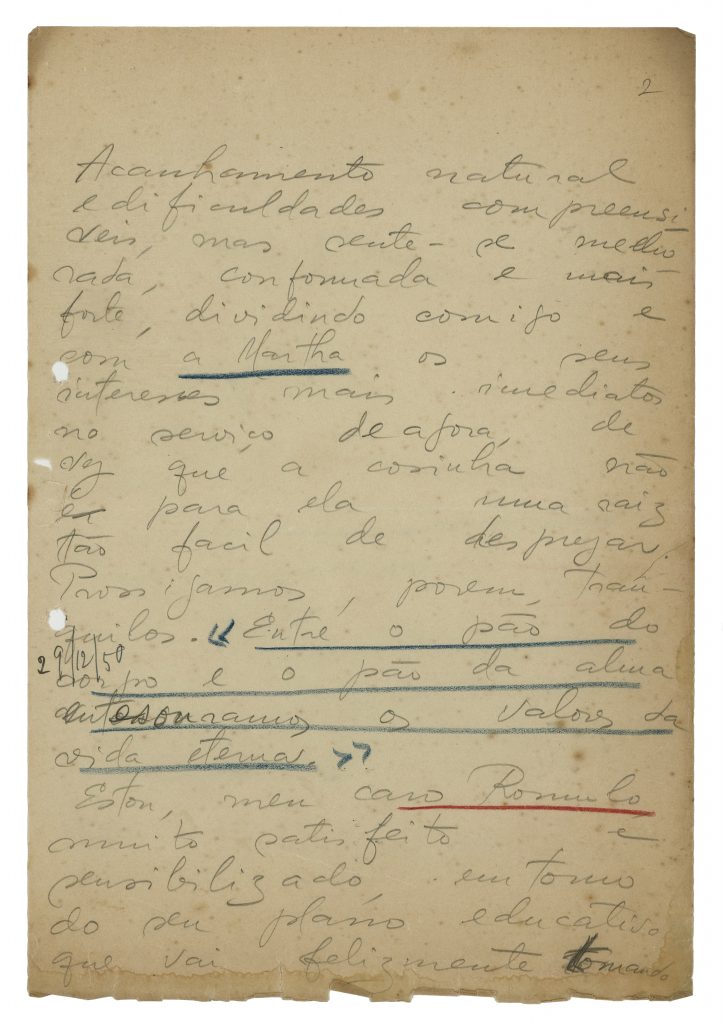 2
Acanhamento natural
e dificuldades compreensi
veis, mas sente-se melho
rada, conformada e mais
forte, dividindo comigo e
com a Martha os seus
interesses mais imediatos
no serviço de agora, de
vez que a cosinha não
é para ela uma raiz
tão facil de desprezar.
Prossigamos, porem, tran-
quilos. << Entre o pão do
29/12/50
corpo e o pão da alma
entesouramos os valores da
vida eterna. >>
Estou, meu caro Romulo,
muito satisfeito e
sensibilizado, em torno
do seu plano educativo
que vai felizmente tomando